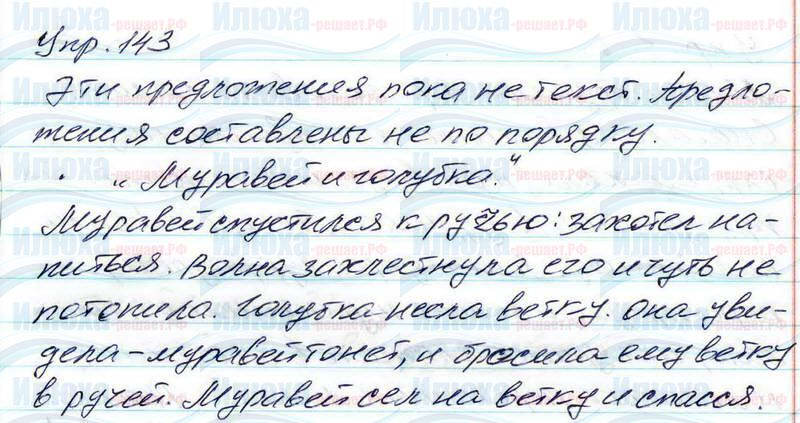 Упр. 143
Эти предложения пока не текст. Предло-
жения составлены не по порядку.
„Муравей и голубка."
Муравей спустился к ручью: захотел на-
питься. Волна захлестнула его и чуть не
потопила. Голубка несла ветку. Она уви-
дела - муравей тонет, и бросила ему ветку
в ручей. Муравей сел на ветку и спасся.